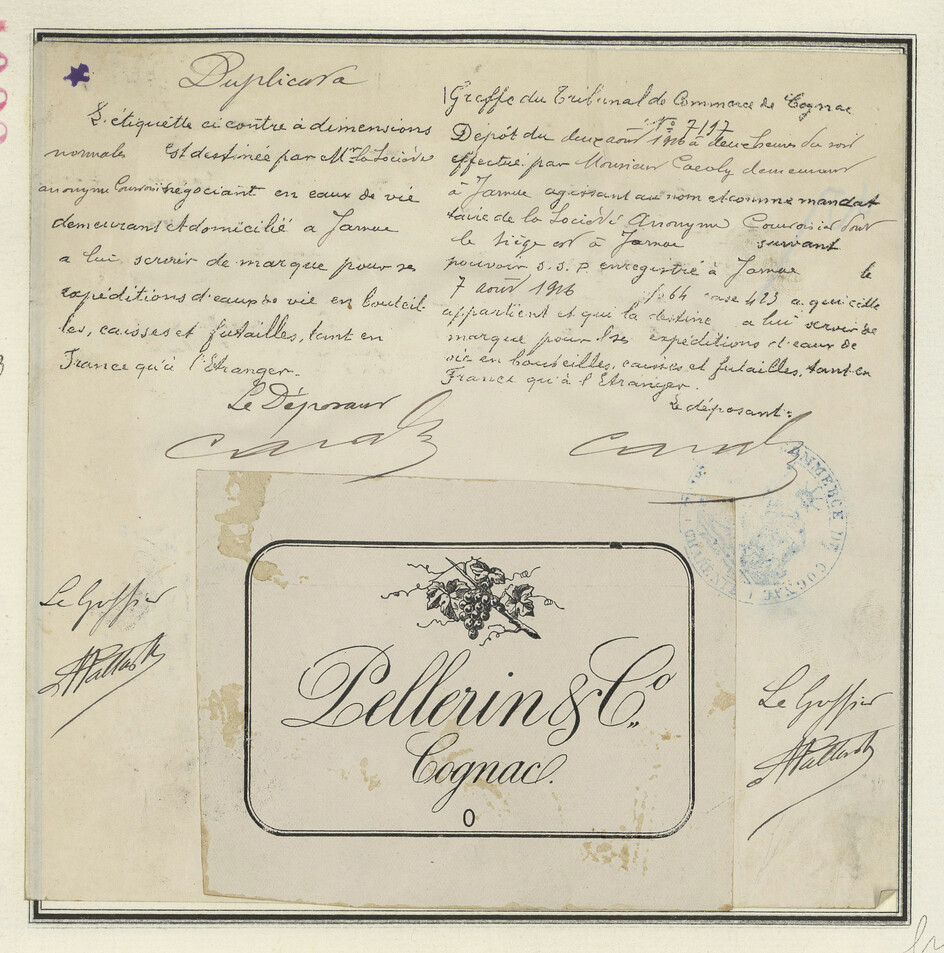 Duplicata
L'étiquette ci contre à dimensions
normales est destinée par Mr la Société
anonyme Courvoisier négociant en eaux de vie
demeurant et domicilié à Jarnac
a lui servir de marque pour ses
expéditions d'eaux de vie en bouteil-
les, caisses et futailles, tant en
France qu'à l'Etranger.
Le Déposant
Greffe du Tribunal de Commerce de Cognac
No 7197
Dépôt du deux août 1916 à deux heures du soir
effectué par Monsieur demeurant
à Jarnac agissant au nom et comme mandat
taire de la Société Anonyme Courvoisier dont
le siège est à Jarnac suivant
pouvoir s.s.p enregistré à Jarnac le
7 août 1916 fo 64 case 423 a qui elle
appartient et qui la destine a lui servir de
marque pour ses expéditions d'eaux de
vie en bouteilles, caisses et futailles, tant en
France qu'à l'Etranger.
Le déposant:
COMMERCE DE COGNAC
Le Greffier
Pellerin & Co
Cognac.
O
Le Greffier